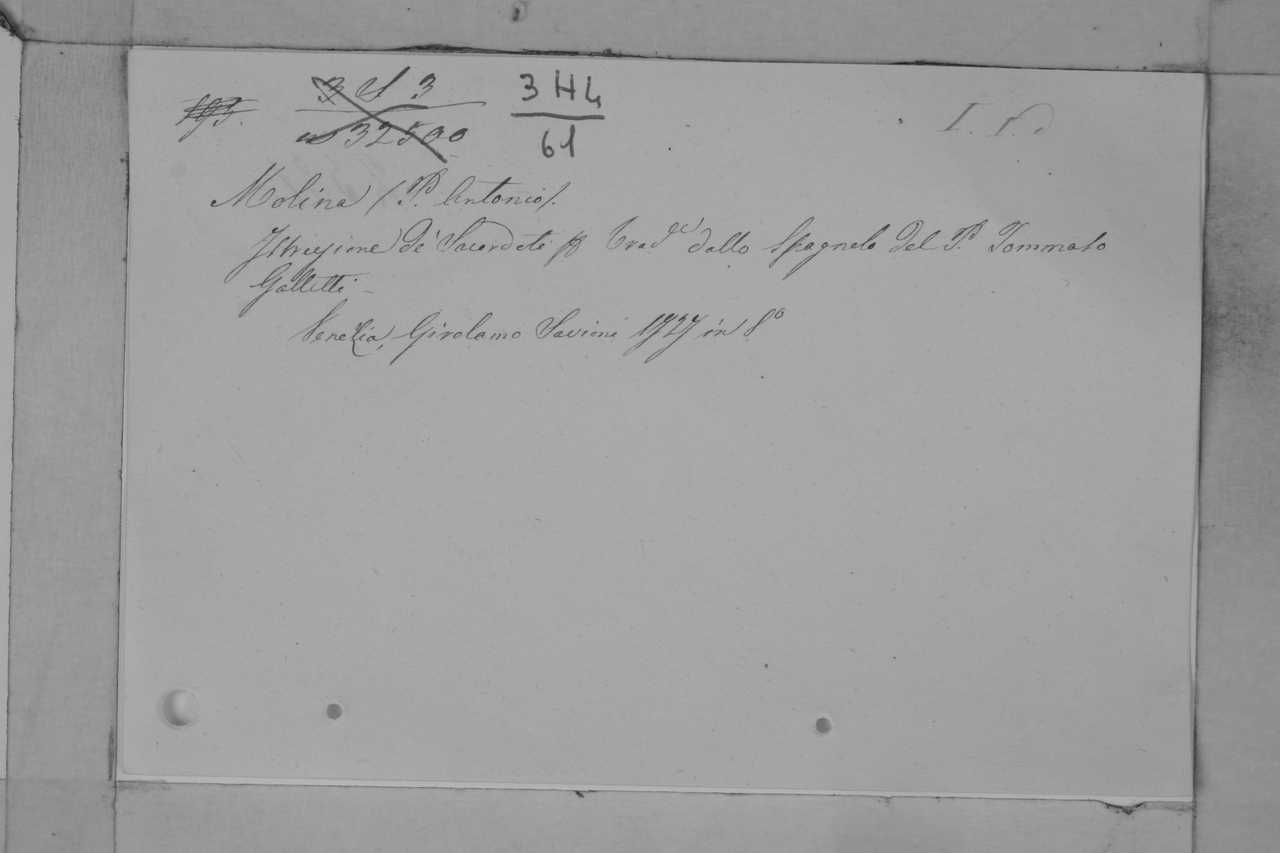 193. 3 S 3 3 H 4
32500 61
Molina (P. Antonio).
Istruzione de' Sacerdoti Trad.e dallo Spagnolo del P. Tommaso
Galletti -
Venezia, Girolamo Savioni 1727 in 8°